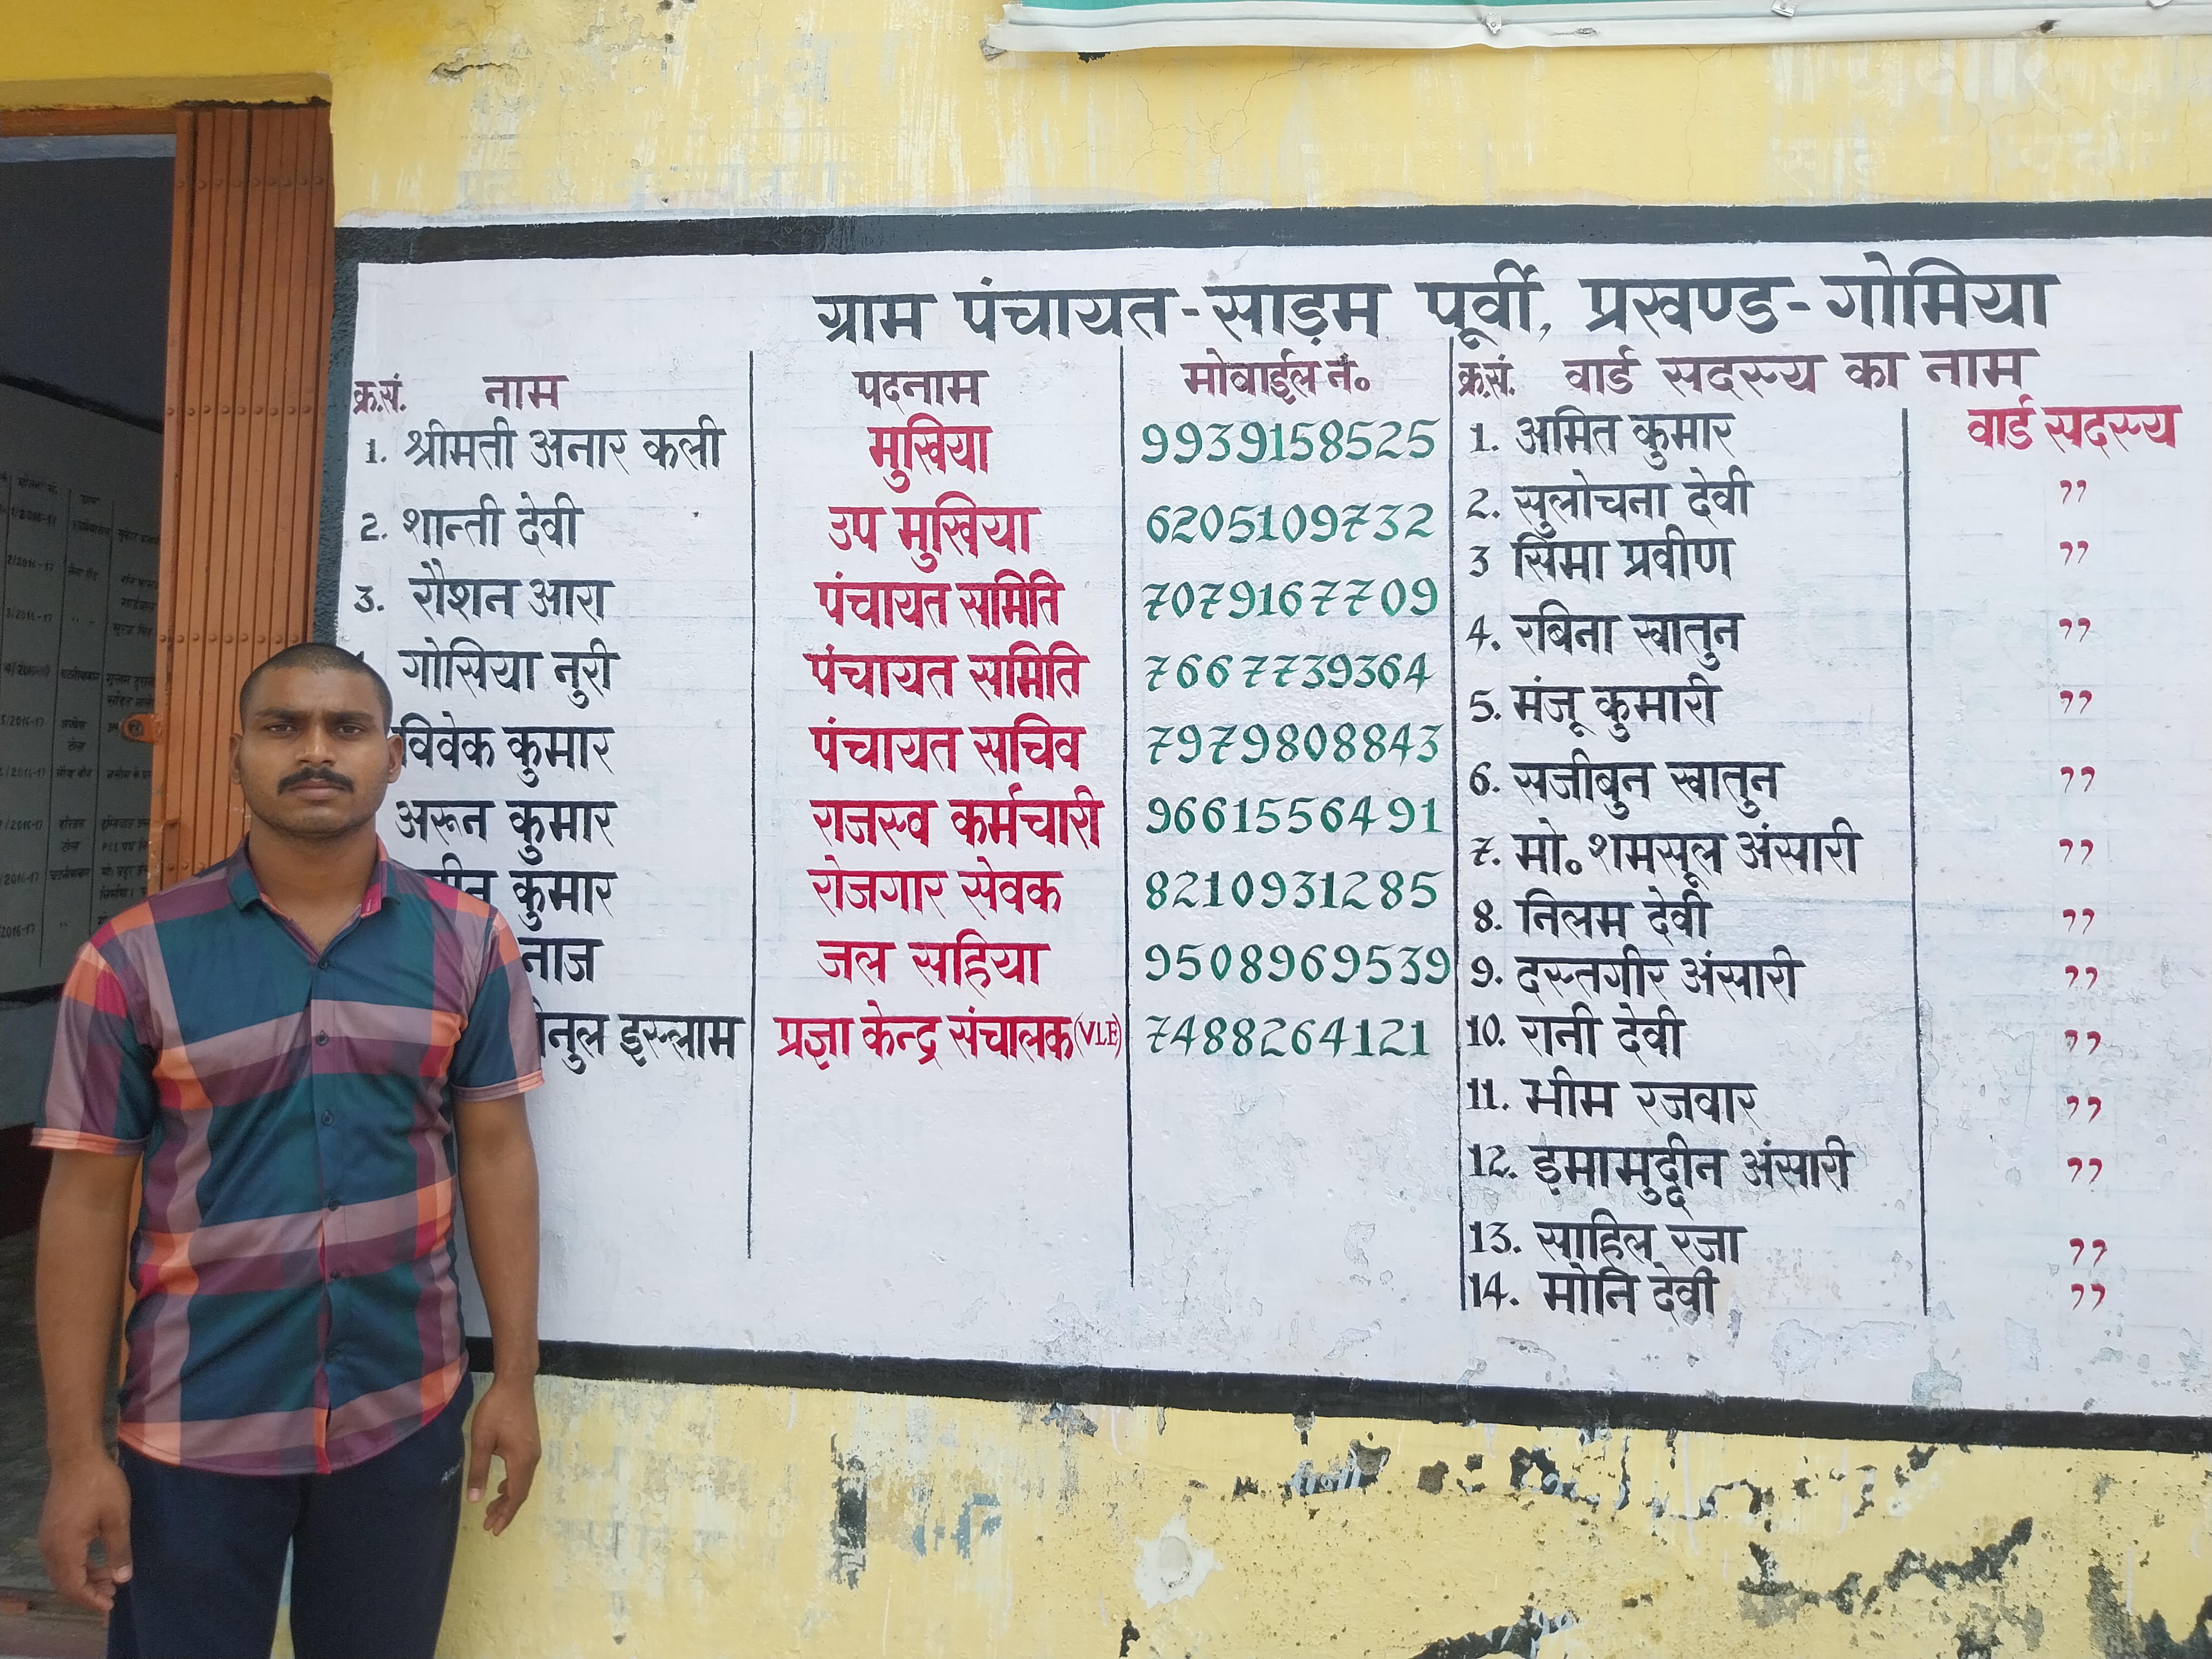 ग्राम पंचायत-साड़म पूर्वी, प्रखण्ड-गोमिया
क्र.सं. नाम पदनाम मोवाईल नं०
1. श्रीमती अनार कली मुखिया 9939158525
2. शान्ती देवी उप मुखिया 6205109732
3. रौशन आरा पंचायत समिति 7079167709
गोसिया नुरी पंचायत समिति 7667739364
विवेक कुमार पंचायत सचिव 7979808843
अरून कुमार राजस्व कर्मचारी 9661556491
कुमार रोजगार सेवक 8210931285
नाज जल सहिया 9508969539
इस्लाम प्रज्ञा केन्द्र संचालक(VLE) 7488264121
क्र.सं. वार्ड सदस्य का नाम
1. अमित कुमार वार्ड सदस्य
2. सुलोचना देवी ,,
3 सिमा प्रवीण ,,
4. रबिना खातुन ,,
5. मंजू कुमारी ,,
6. सजीबुन खातुन ,,
7. मो० शमसूल अंसारी ,,
8. निलम देवी ,,
9. दस्तगीर अंसारी ,,
10. रानी देवी ,,
11. भीम रजवार ,,
12. ड़मामुद्दीन अंसारी ,,
13. साहिल रजा ,,
14. मोनि देवी ,,